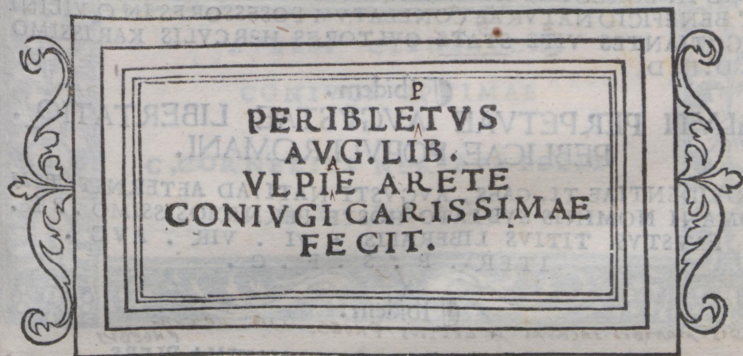 P
PERIBLETVS
AVG.LIB.
VLPIE ARETE
CONIVGI CARISSIMAE
FECIT.